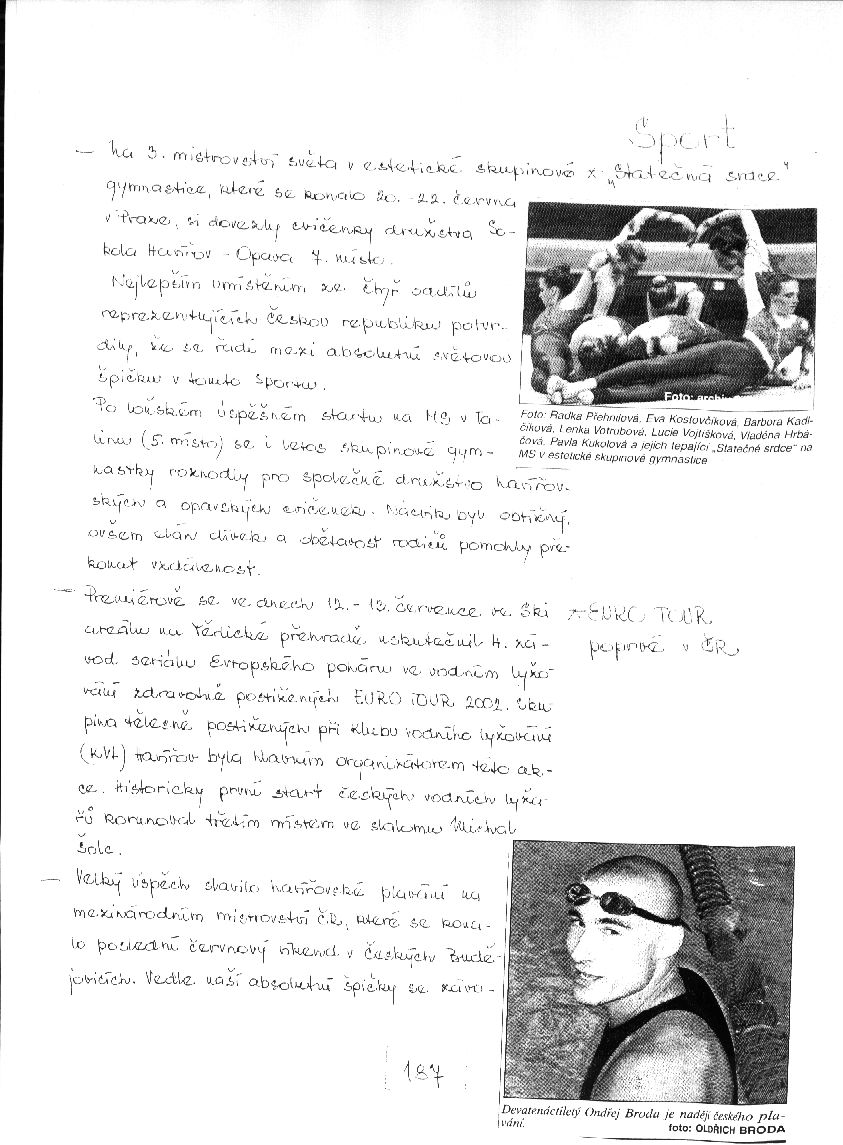 Šport
– Na 3. mistrovství světa v estetické skupinové x „Statečná srdce"
gymnastice, které se konalo 20. - 22. června
v Praze, si dovezly cvičenky družstva So-
kola Havířov - Opava 7. místo.
Nejlepším umístěním ze čtyř oddílů
reprezentujících českou republiku potvr-
dily, že se řadí mezi absolutní světovou
špičku v tomto sportu.
Po loňském úspěšném startu na MS v Ta-
linu (5. místo) se i letos skupinové gym-
nastky rozhodly pro společné družstvo havířov-
ských a opavských cvičenek. Nácvik byl obtížný,
ovšem elán dívek a obětavost rodičů pomohly pře-
konat vzdálenost.
Foto: archiv
Foto: Radka Přehnilová, Eva Kostovčíková, Barbora Kadl-
číková, Lenka Votrubová, Lucie Vojtíšková, Vladěna Hrbá-
čová, Pavla Kukolová a jejich tepající „Statečné srdce" na
MS v estetické skupinové gymnastice
– Premiérově se ve dnech 12. - 13. července ve Ski
areálu na Těrlické přehradě uskutečnil 4. zá-
vod seriálu Evropského poháru ve vodním lyžo-
vání zdravotně postižených EURO TOUR 2002. Sku
pina tělesně postižených při Klubu vodního lyžování
(KVL) Havířov byla hlavním organizátorem této ak-
ce. Historicky první start českých vodních lyža-
řů korunoval třetím místem ve slalomu Michal
Šolc.
x EURO TOUR
poprvé v ČR
– Velký úspěch slavilo havířovské plavání na
mezinárodním mistrovství ČR, které se kona-
lo poslední červnový víkend v Českých Budě-
jovicích. Vedle naší absolutní špičky se závo-
Devatenáctiletý Ondřej Broda je nadějí českého pla-
vání.
foto: OLDŘICH BRODA
187